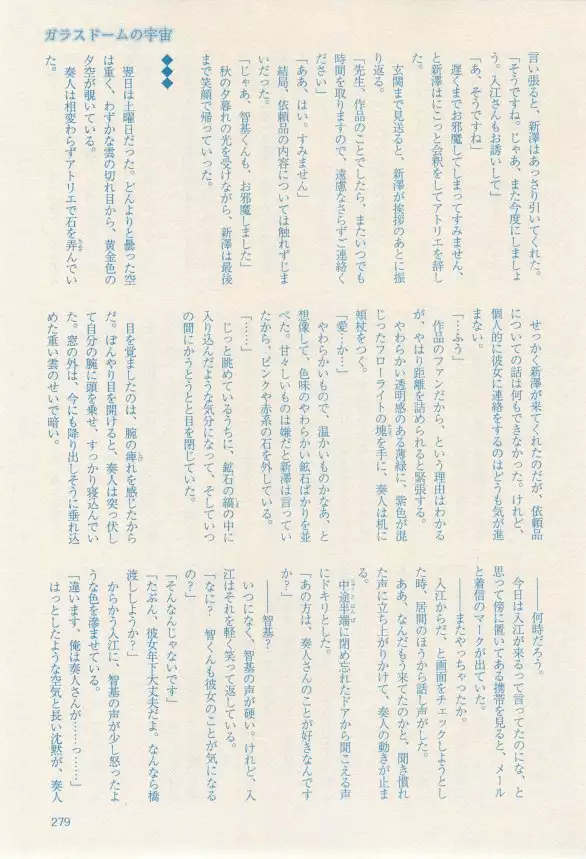 ガラスドームの宇宙
言い張ると、新澤はあっさり引いてくれた。
「そうですね。じゃあ、また今度にしましょ
う。入江さんもお誘いして」
「あ、そうですね」
遅くまでお邪魔してしまってすみません、
と新澤はにこっと会釈をしてアトリエを辞し
た。
玄関まで見送ると、新澤が挨拶のあとに振
り返る。
「先生、作品のことでしたら、またいつでも
時間を取りますので、遠慮なさらずご連絡く
ださい」
「ああ、はい。すみません」
結局、依頼品の内容については触れずじま
いだった。
「じゃあ、智基くんも、お邪魔しました」
秋の夕暮れの光を受けながら、新澤は最後
まで笑顔で帰っていった。
◆◆◆
翌日は土曜日だった。どんよりと曇った空
は重く、わずかな雲の切れ目から、黄金色の
夕空が覗いている。
奏人は相変わらずアトリエで石を弄んでい
た。
せっかく新澤が来てくれたのだが、依頼品
についての話は何もできなかった。けれど、
個人的に彼女に連絡をするのはどうも気が進
まない。
「…ふう」
作品のファンだから、という理由はわかる
が、やはり距離を詰められると緊張する。
やわらかい透明感のある薄緑に、紫色が混
じったフローライトの塊を手に、奏人は机に
頬杖をつく。
「愛…か…」
やわらかいもので、温かいものかなあ、と
想像して、色味のやわらかい鉱石ばかりを並
べた。甘々しいものは嫌だと新澤は言ってい
たから、ピンクや赤系の石を外している。
「……」
じっと眺めているうちに、鉱石の縞の中に
入り込んだような気分になって、そしていつ
の間にかうとうとと目を閉じていた。
目を覚ましたのは、腕の痺れを感じたから
だ。ぼんやり目を開けると、奏人は突っ伏し
て自分の腕に頭を乗せ、すっかり寝込んでい
た。窓の外は、今にも降り出しそうに垂れ込
めた重い雲のせいで暗い。
――何時だろう。
今日は入江が来るって言ってたのにな、と
思って傍に置いてある携帯を見ると、メール
と着信のマークが出ていた。
――またやっちゃったか。
入江からだ、と画面をチェックしようとし
た時、居間のほうから話し声がした。
ああ、なんだもう来てたのかと、聞き慣れ
た声に立ち上がりかけて、奏人の動きが止ま
る。
中途半端に閉め忘れたドアから聞こえる声
にドキリとした。
「あの方は、奏人さんのことが好きなんです
か？」
――智基？
いつになく、智基の声が硬い。けれど、入
江はそれを軽く笑って返している。
「なに？　智くんも彼女のことが気になる
の？」
「そんなんじゃないです」
「たぶん、彼女年下大丈夫だよ。なんなら橋
渡ししようか？」
からかう入江に、智基の声が少し怒ったよ
うな色を滲ませている。
「違います、俺は奏人さんが……っ……」
はっとしたような空気と長い沈黙が、奏人
279